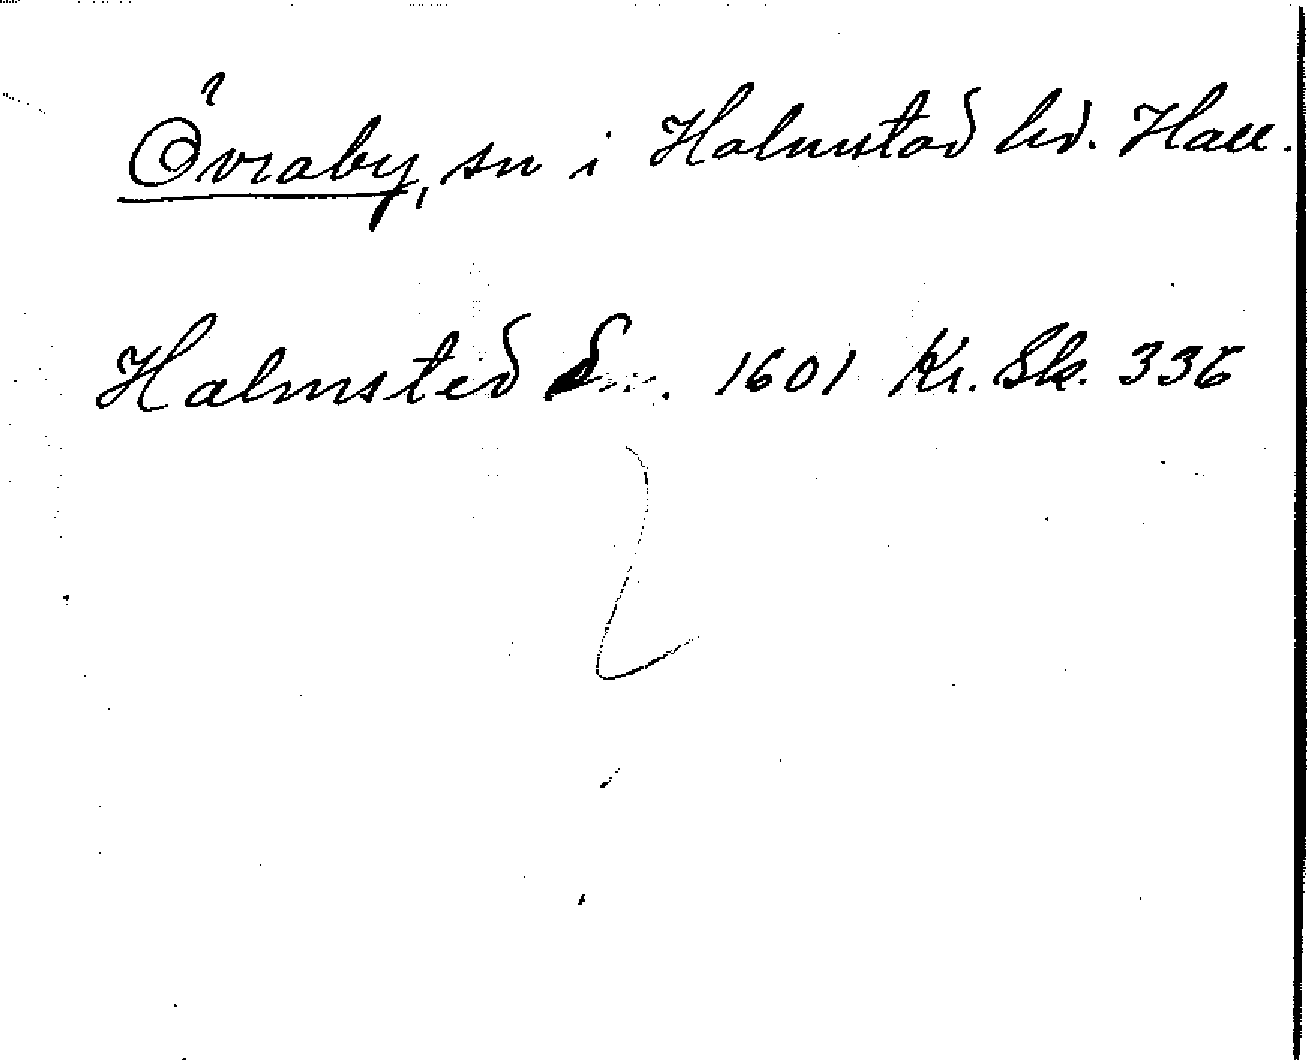 Övraby, sn i Halmstad hd. Hall.
Halmsted Sn. 1601 Kr. Sk. 336